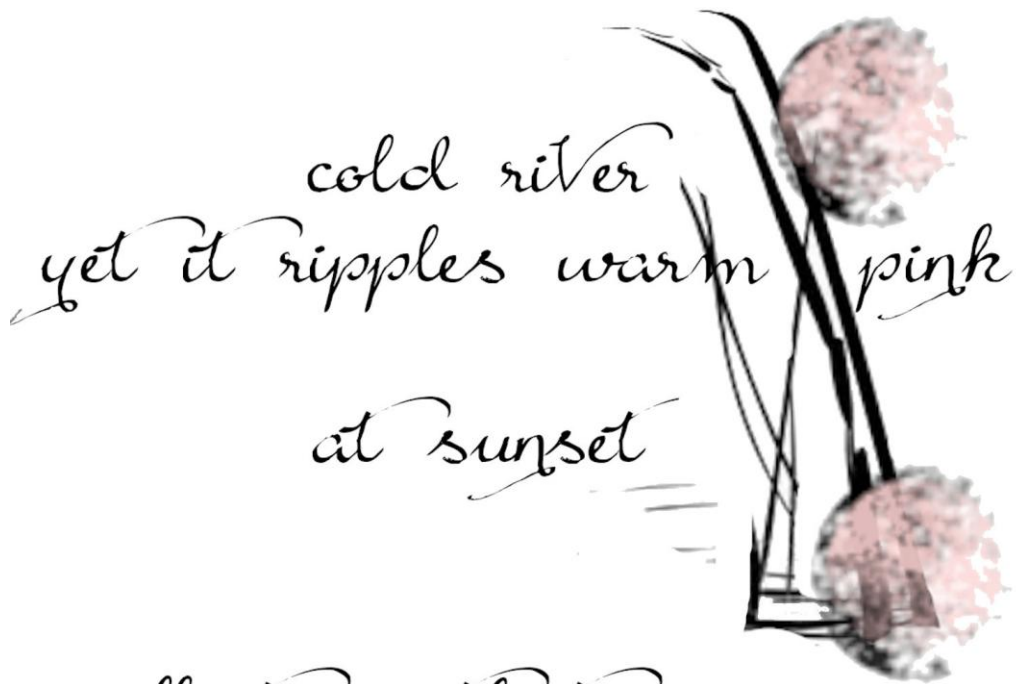 cold river
yet it ripples warm pink
at sunset